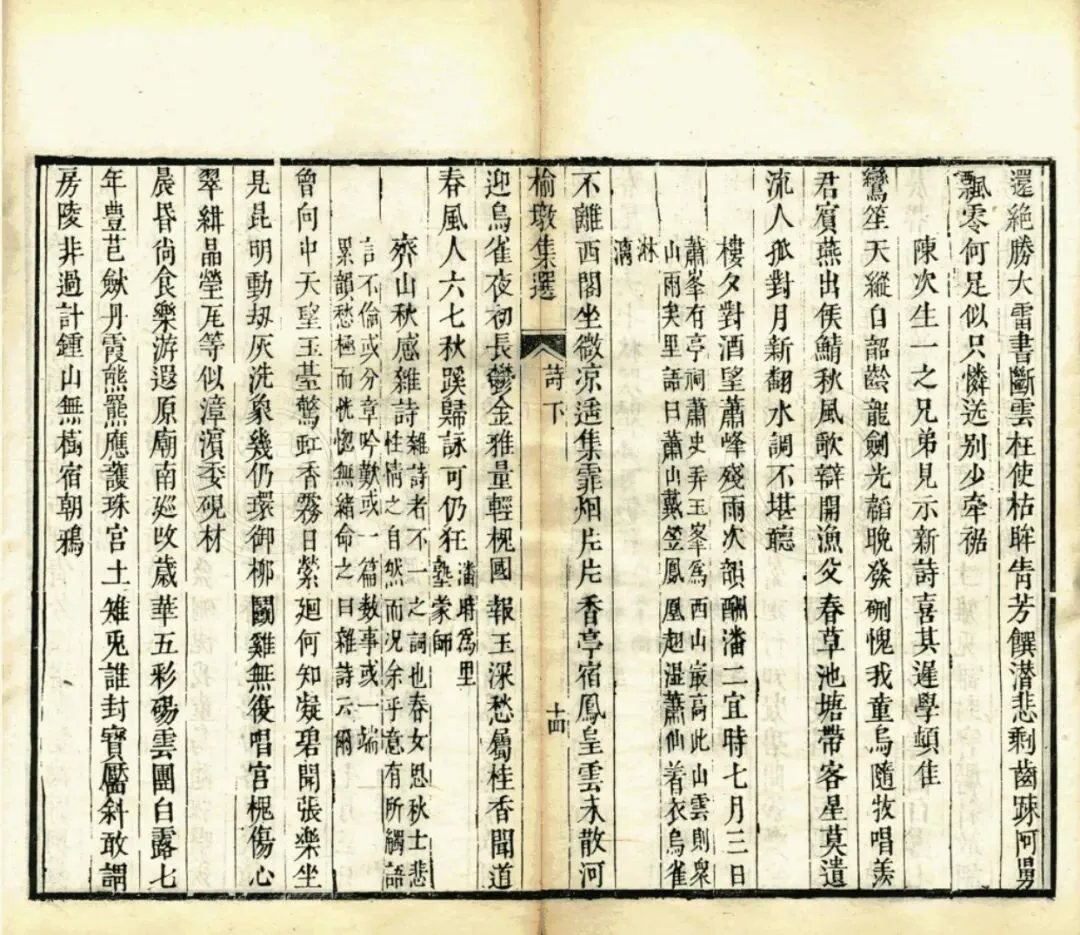 還絶勝大雷書斷雲枉使枯眸靑芳饌潜悲剩齒踈阿男
飄零何足似只憐迭别少牽裾
陳次生一之兄弟見示新詩喜其遲學頓隹
鸞笙天縱自韶齡龍劍光韜晚發硎愧我童烏隨牧唱羡
君賓燕出侯鯖秋風歌辯開漁父春草池塘帶客星莫遣
流人孤對月新翻水調不堪聽
樓夕對酒望蕭峰殘雨次韻酬潘二宜時七月三日
蕭峯有亭祠蕭史弄玉峯爲西山最高此山雲則衆
山雨矣里語曰蕭山戴笠鳳凰起濕蕭仙着衣烏雀
淋
漓
不離西閣坐微凉遥集霏烟片片香亭宿鳳皇雲未散河
榆墩集選 詩下 十四
迎烏雀夜初長鬱金雅量輕槐國報玉深愁屬桂香聞道
春風人六七秋蹊歸詠可仍狂
潘時爲里
塾蒙師
齊山秋感雜詩
雜詩者不一之詞也春女思秋士悲
性情之自然而况余乎意有所觸語
言不倫或分章吟歎或一篇數事或一端
累韻愁極而恍惚無緒命之曰雜詩云爾
曾向中天望玉臺驚虹香霧日縈廻何知凝碧聞張樂坐
見昆明動刼灰洗象幾仍環御柳鬬雞無復唱宮槐傷心
翠緋晶瑩瓦等似漳濵委硯材
晨昏尙食樂游遐原廟南廵攺歲華五彩碭雲團白露七
年豊芑歛丹霞熊羆應護珠宮土雉兎誰封寶壓斜敢謂
房陵非過計鍾山無樹宿朝鴉